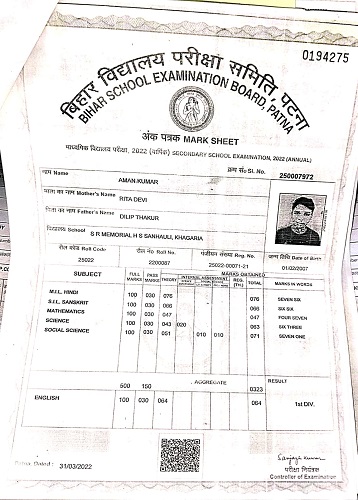 0194275
बिहार विद्यालय परीक्षा समिति, पटना
BIHAR SCHOOL EXAMINATION BOARD, PATNA
अंक पत्रक MARK SHEET
माध्यमिक विद्यालय परीक्षा, 2022 (वार्षिक) SECONDARY SCHOOL EXAMINATION, 2022 (ANNUAL)
नाम Name क्रम सं० Sl. No. 250007972
AMAN KUMAR
माता का नाम Mother's Name
RITA DEVI
पिता का नाम Father's Name
DILIP THAKUR
विद्यालय School
S R MEMORIAL H S SANHAULI, KHAGARIA
रौल कोड Roll Code रौल नं० Roll Number पंजीयन संख्या Reg. No. जन्म तिथि Date of Birth
25022 2200087 25022-00071-21 01/02/2007
SUBJECT FULL MARKS PASS MARKS THEORY INTERNAL ASSESSMENT MARKS OBTAINED REG. TOTAL MARKS IN WORDS
M.I.L. HINDI 100 030 076 076 SEVEN SIX
S.I.L. SANSKRIT 100 030 066 066 SIX SIX
MATHEMATICS 100 030 047 047 FOUR SEVEN
SCIENCE 100 030 043 020 063 SIX THREE
SOCIAL SCIENCE 100 030 051 010 010 071 SEVEN ONE
500 150 AGGREGATE 0323 RESULT
ENGLISH 100 030 064 064 1st DIV.
Patna, Dated : 31/03/2022
Sanjay Kumar
परीक्षा नियंत्रक
Controller of Examination